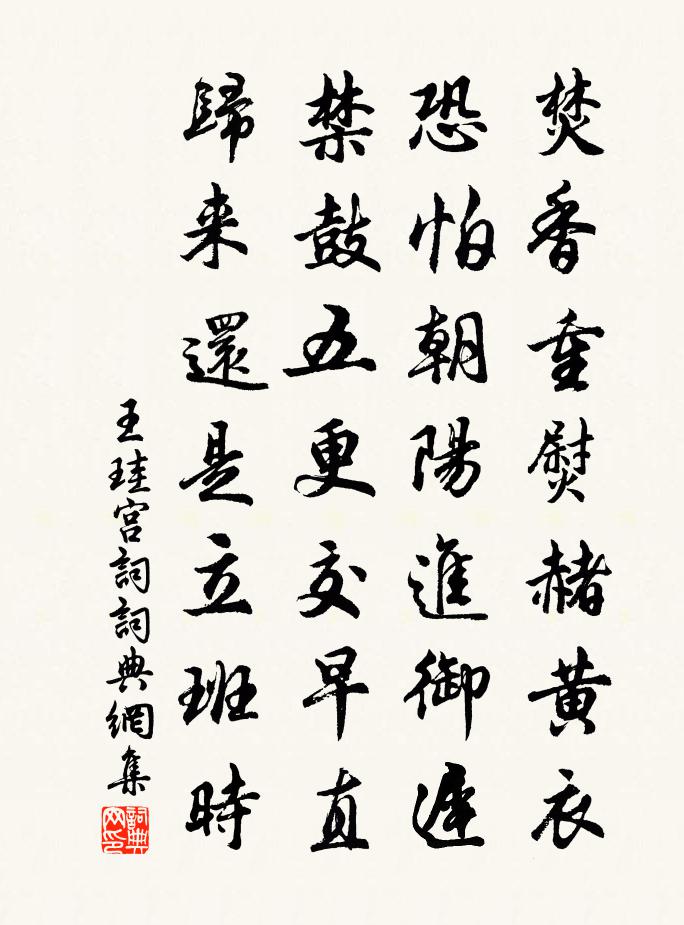 焚香重熨赭黃衣
恐怕朝陽進御遲
禁鼓五更交早直
歸来還是立班時
王珪宮詞詞典網集
詞典网印